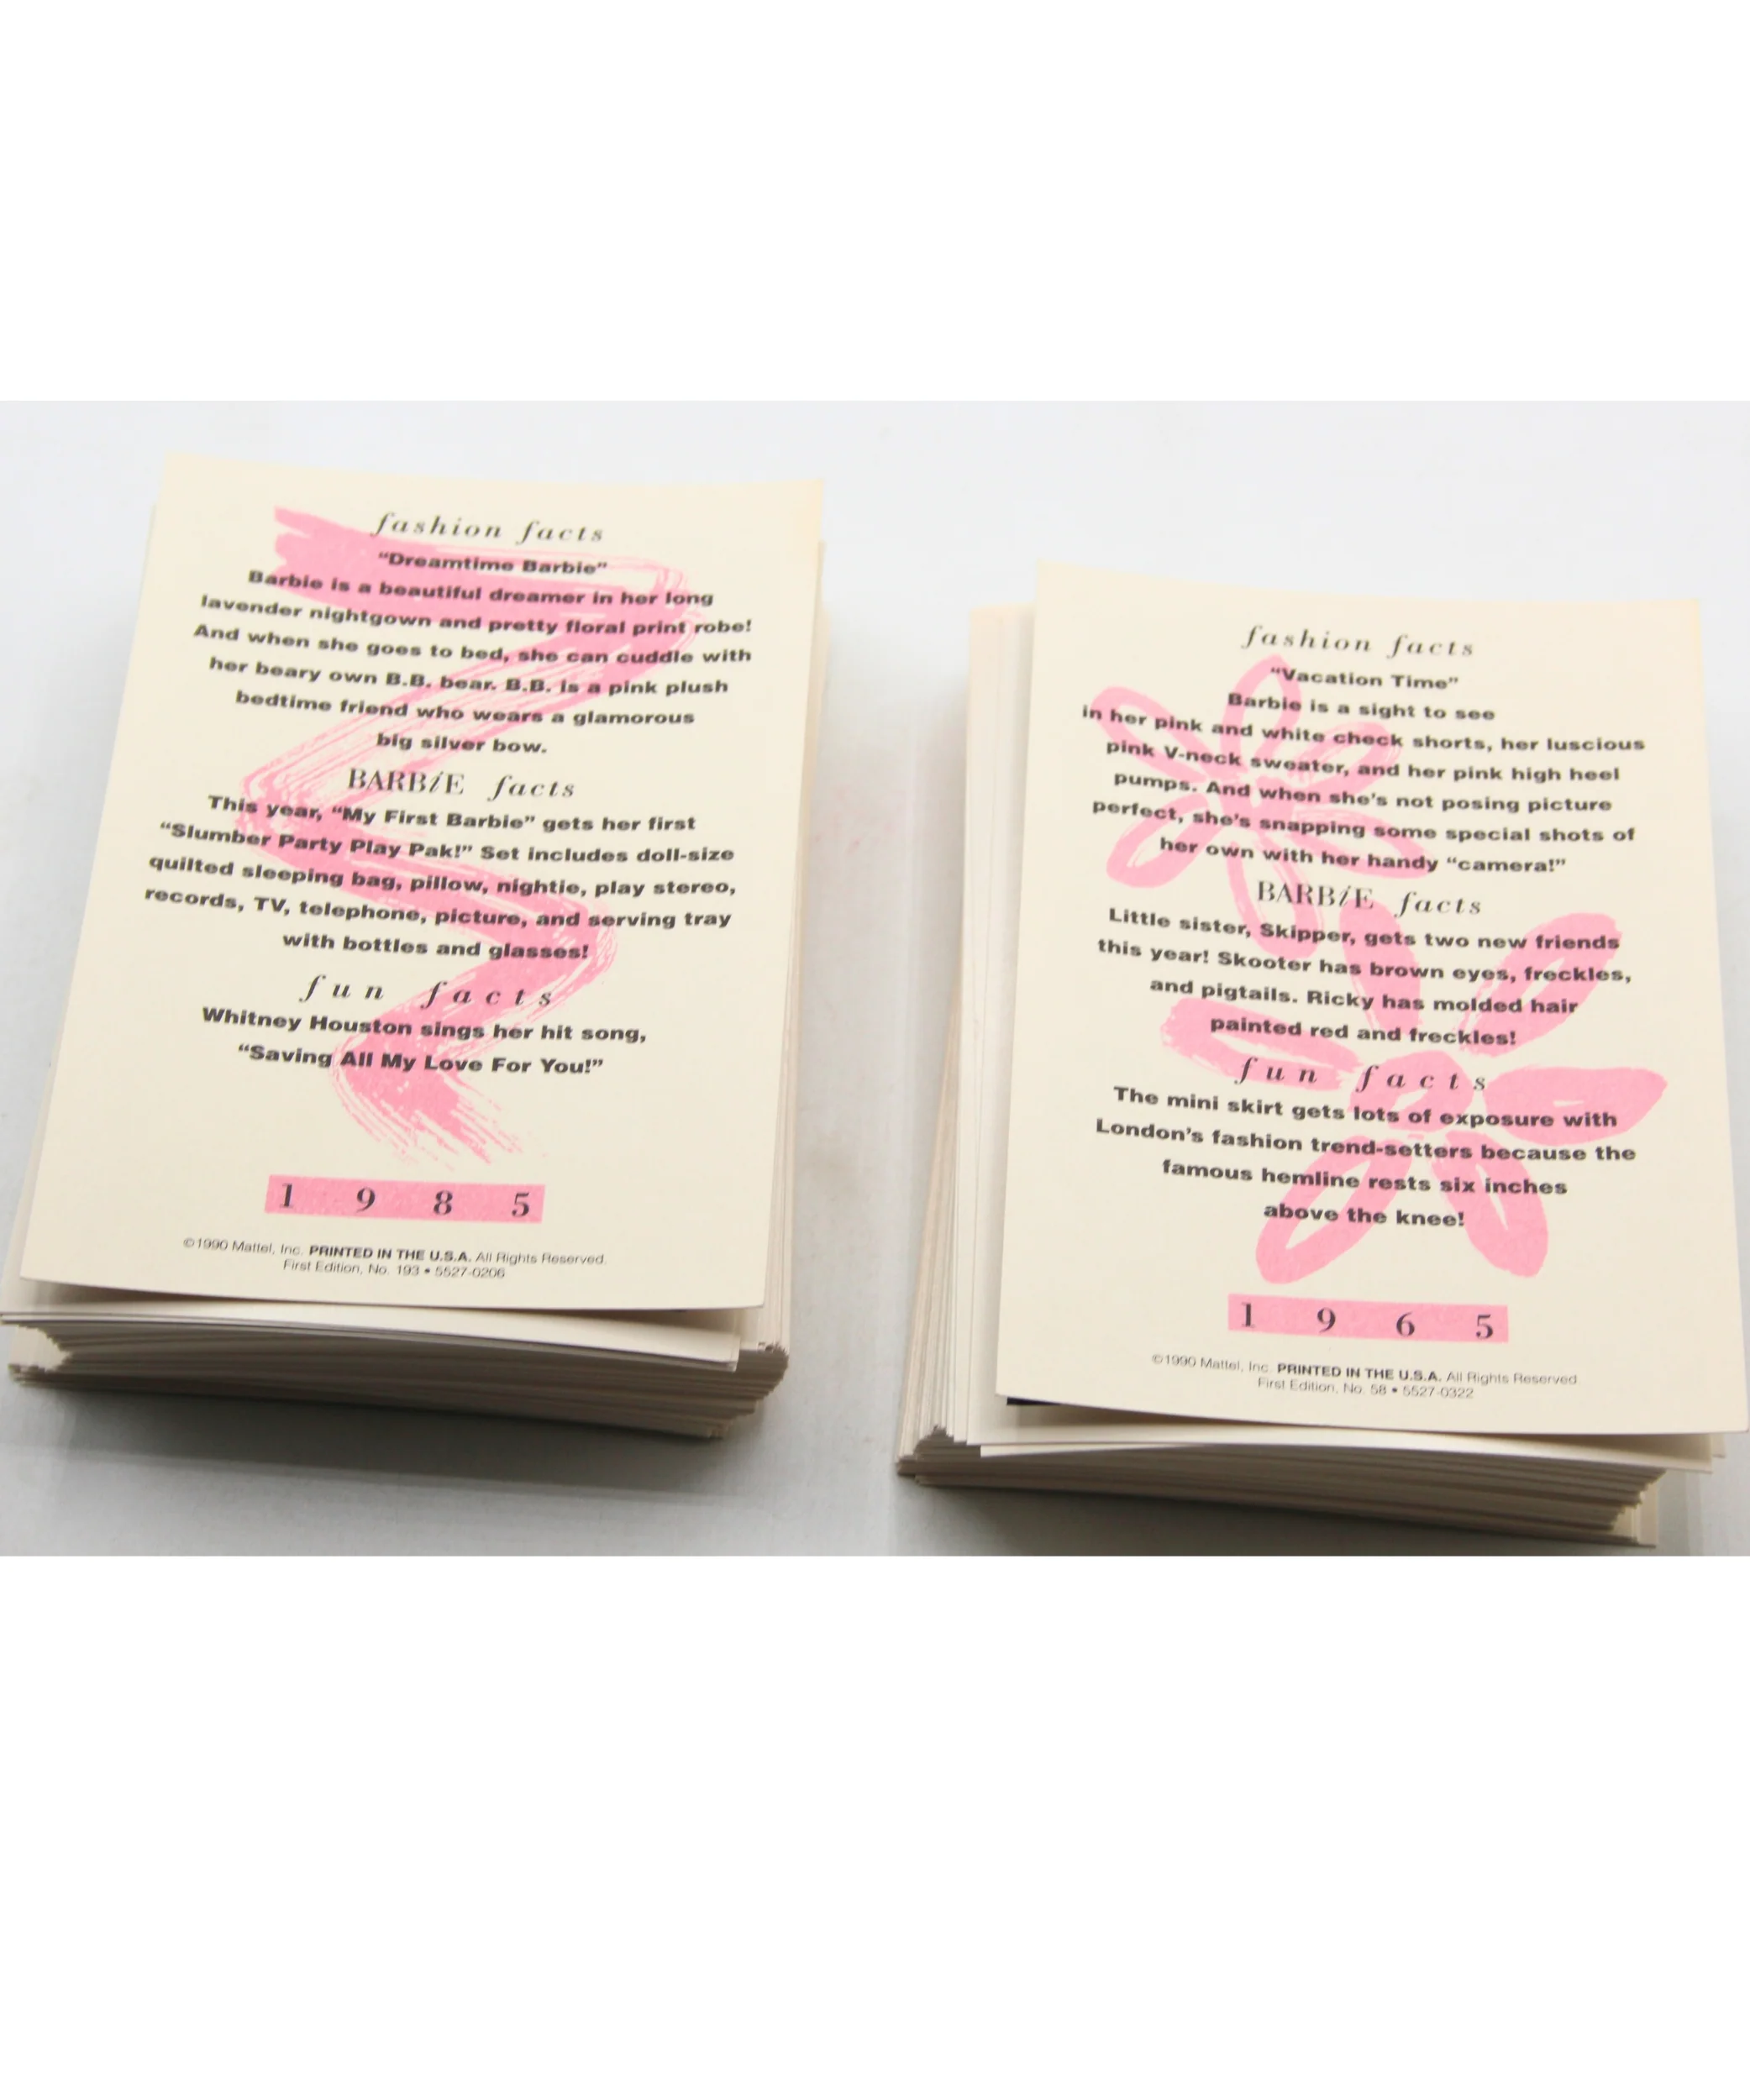 fashion facts
“Dreamtime Barbie”
Barbie is a beautiful dreamer in her long
lavender nightgown and pretty floral print robe!
And when she goes to bed, she can cuddle with
her beary own B.B. bear. B.B. is a pink plush
bedtime friend who wears a glamorous
big silver bow.
BARBiE facts
This year, “My First Barbie” gets her first
“Slumber Party Play Pak!” Set includes doll-size
quilted sleeping bag, pillow, nightie, play stereo,
records, TV, telephone, picture, and serving tray
with bottles and glasses!
fun facts
Whitney Houston sings her hit song,
“Saving All My Love For You!”
1 9 8 5
©1990 Mattel, Inc. PRINTED IN THE U.S.A. All Rights Reserved.
First Edition, No. 193 • 5527-0206
fashion facts
“Vacation Time”
Barbie is a sight to see
in her pink and white check shorts, her luscious
pink V-neck sweater, and her pink high heel
pumps. And when she’s not posing picture
perfect, she’s snapping some special shots of
her own with her handy “camera!”
BARBiE facts
Little sister, Skipper, gets two new friends
this year! Skooter has brown eyes, freckles,
and pigtails. Ricky has molded hair
painted red and freckles!
fun facts
The mini skirt gets lots of exposure with
London’s fashion trend-setters because the
famous hemline rests six inches
above the knee!
1 9 6 5
©1990 Mattel, Inc. PRINTED IN THE U.S.A. All Rights Reserved.
First Edition, No. 58 • 5527-0322